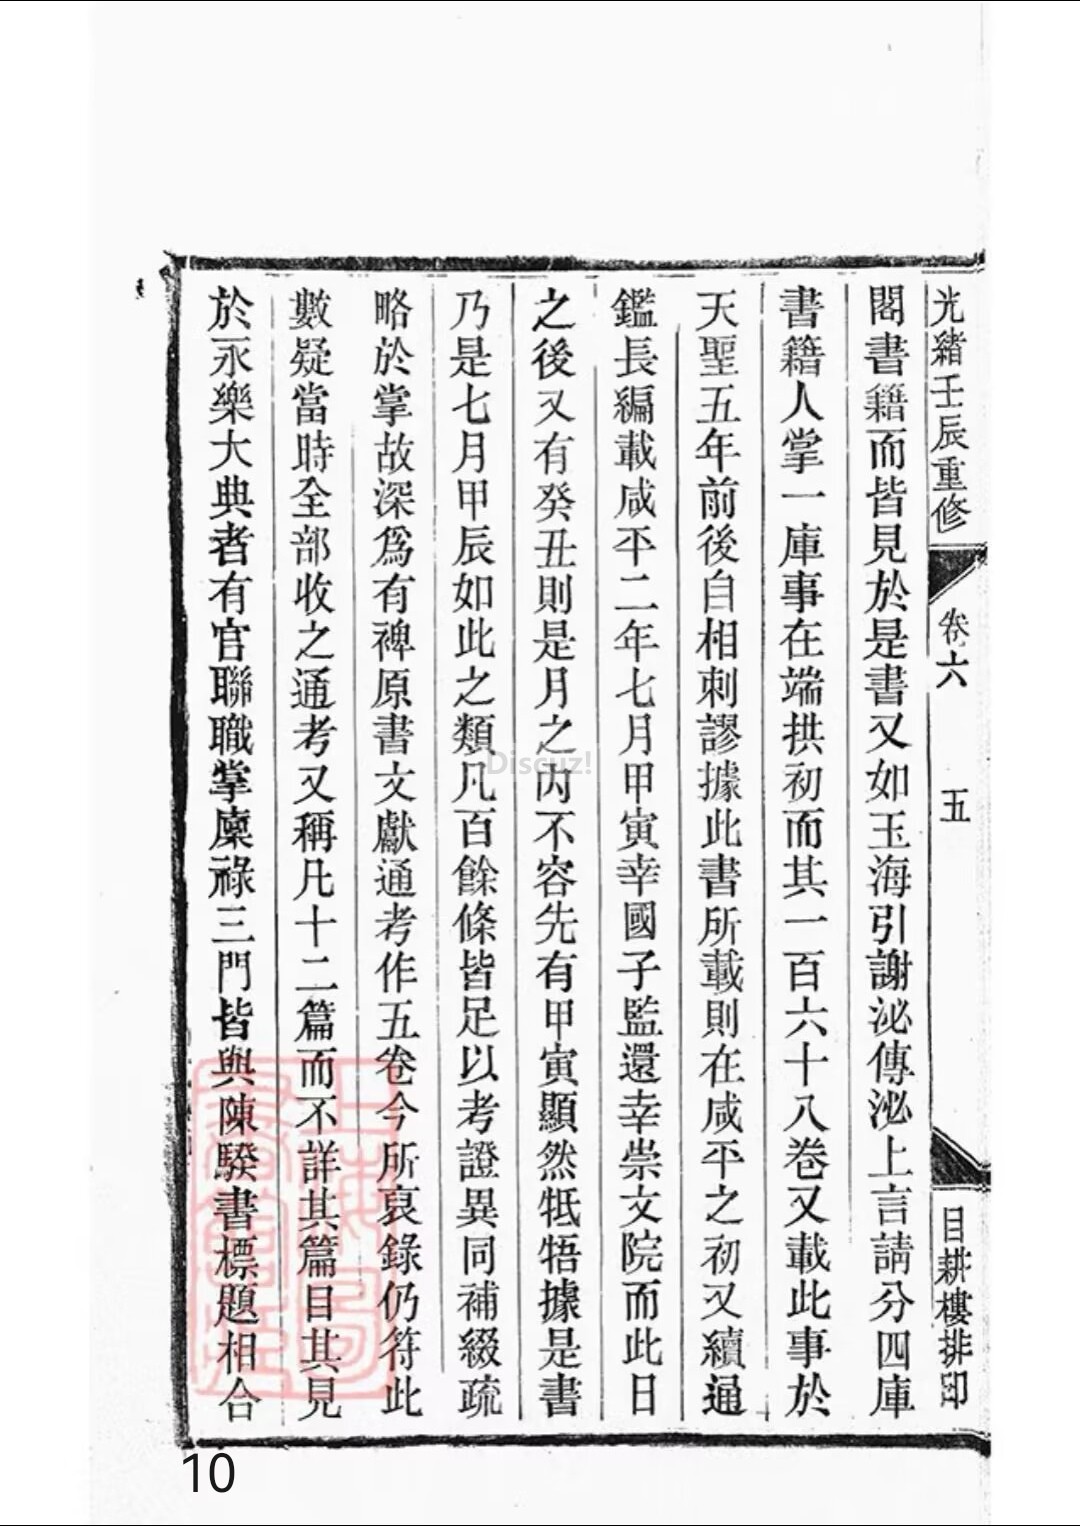 光緒壬辰重修
卷六
五
目耕樓排印
閣書籍而皆見於是書又如玉海引謝泌傳泌上言請分四庫
書籍人掌一庫事在端拱初而其一百六十八卷又載此事於
天聖五年前後自相刺謬據此書所載則在咸平之初又續通
鑑長編載咸平二年七月甲寅幸國子監還幸崇文院而此日
之後又有癸丑則是月之內不容先有甲寅顯然牴牾據是書
乃是七月甲辰如此之類凡百餘條皆足以考證異同補綴疏
略於掌故深爲有裨原書文獻通考作五卷今所裒錄仍符此
數疑當時全部收之通考又稱凡十二篇而不詳其篇目其見
於永樂大典者有官聯職掌廩祿三門皆與陳騤書標題相合
上海圖書館藏
Discuz!
10